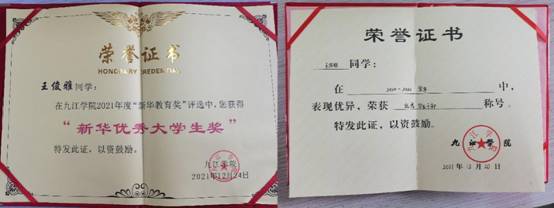 荣誉证书
HONORARY CREDENTIAL
王俊雅同学：
在九江学院2021年度“新华教育奖”评选中，您获得
“新华优秀大学生奖”
特发此证，以资鼓励。
九江学院
2021年12月24日
荣誉证书
同学：
在 中，
表现优异，荣获 称号，
特发此证，以资鼓励。
九江学院